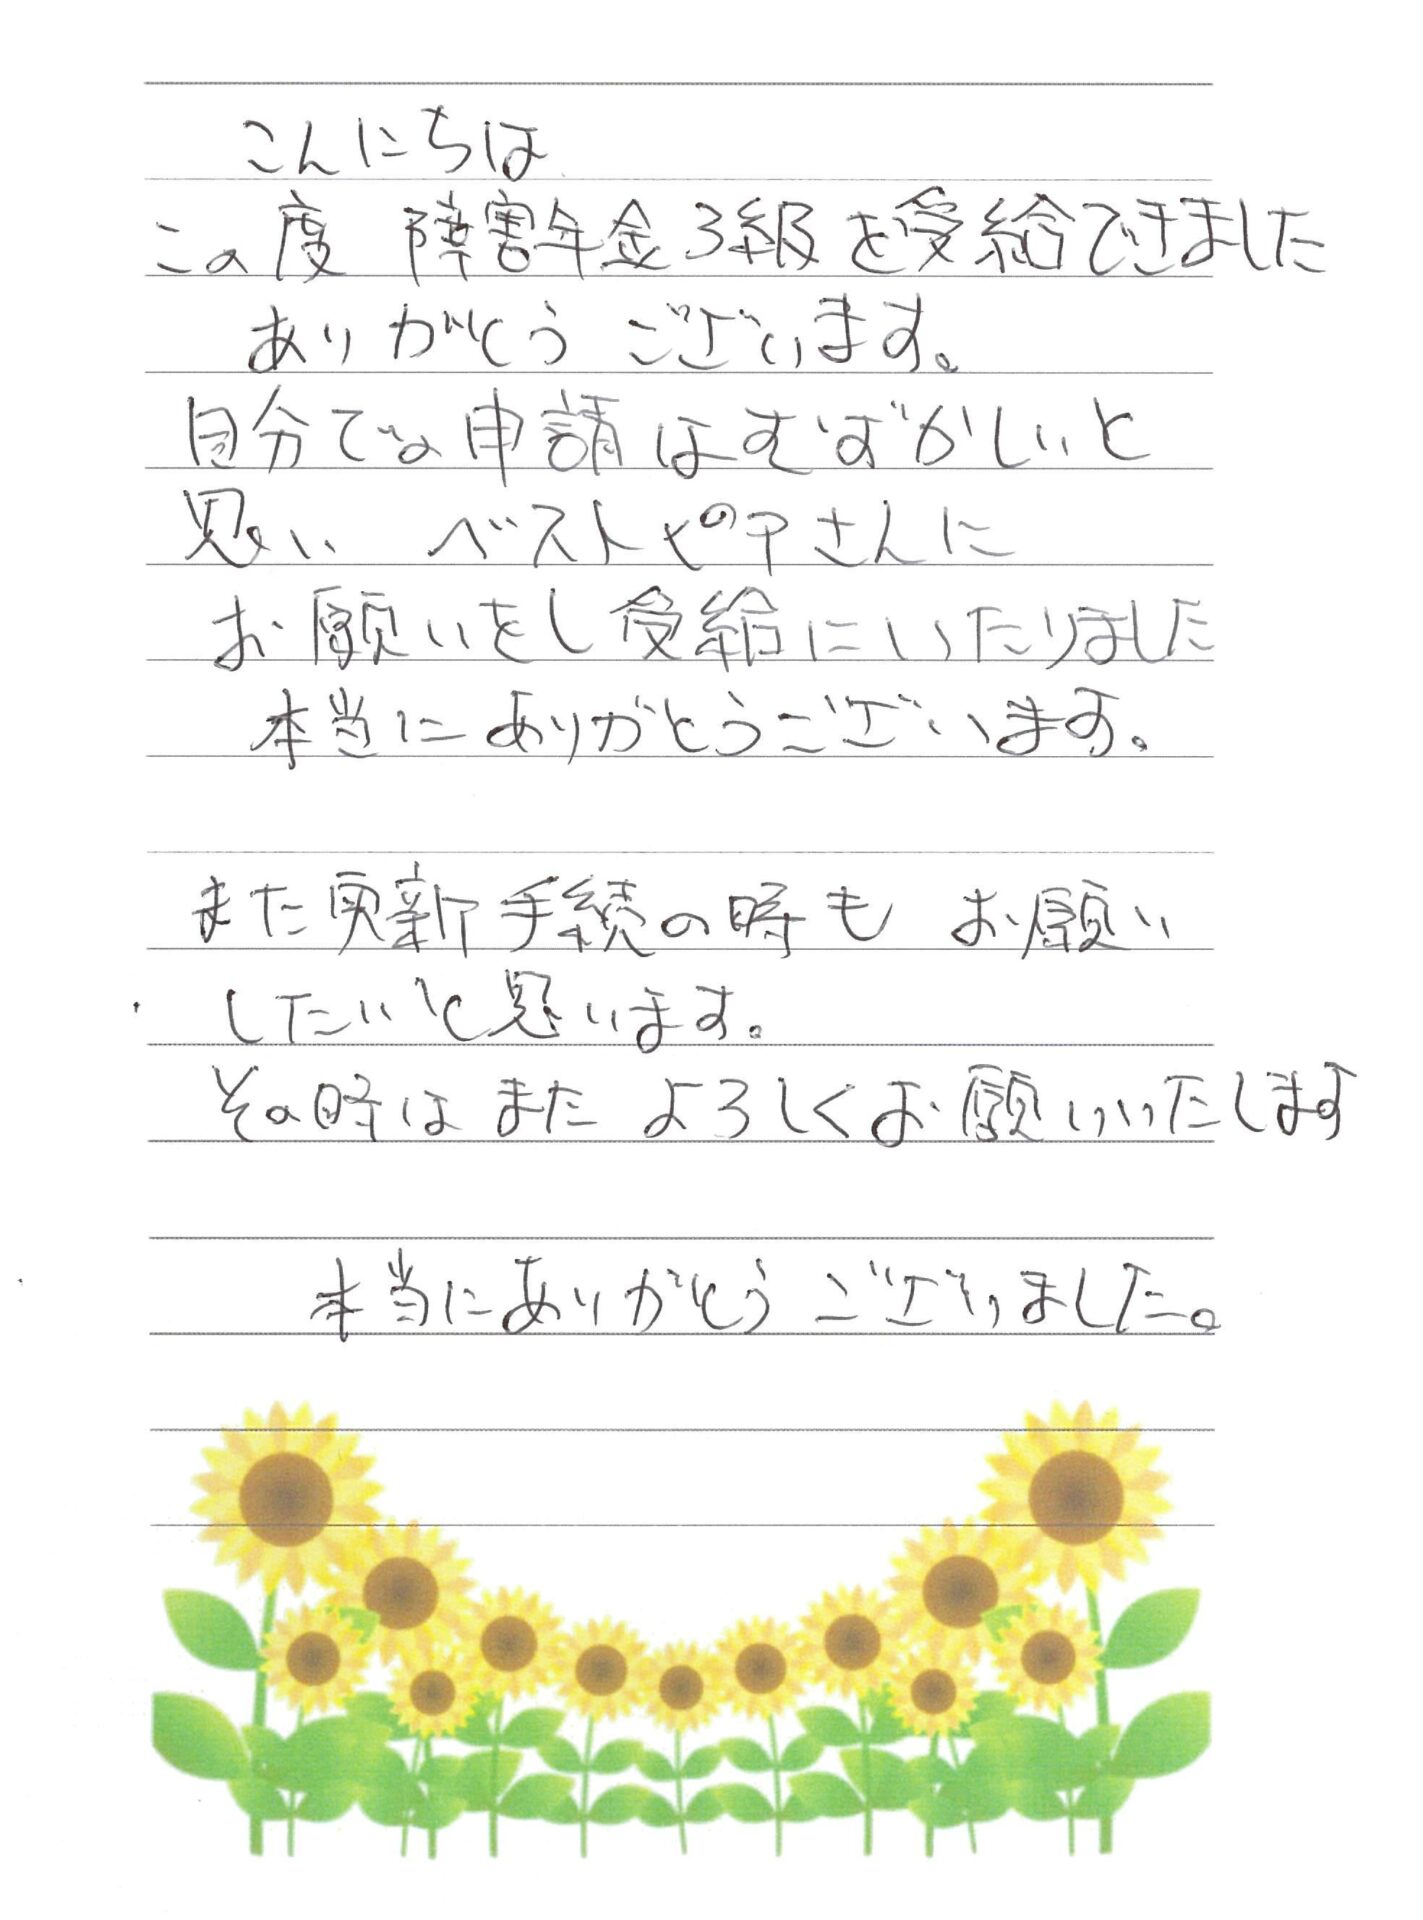 こんにちは
この度 障害年金3級を受給できました
ありがとうございます。
自分での申請はむずかしいと
思い ベストピアさんに
お願いをし受給にいたりました
本当にありがとうございます。
また更新手続の時も お願い
したいと思います。
その時はまた よろしくお願いいたします
本当にありがとう ございました。